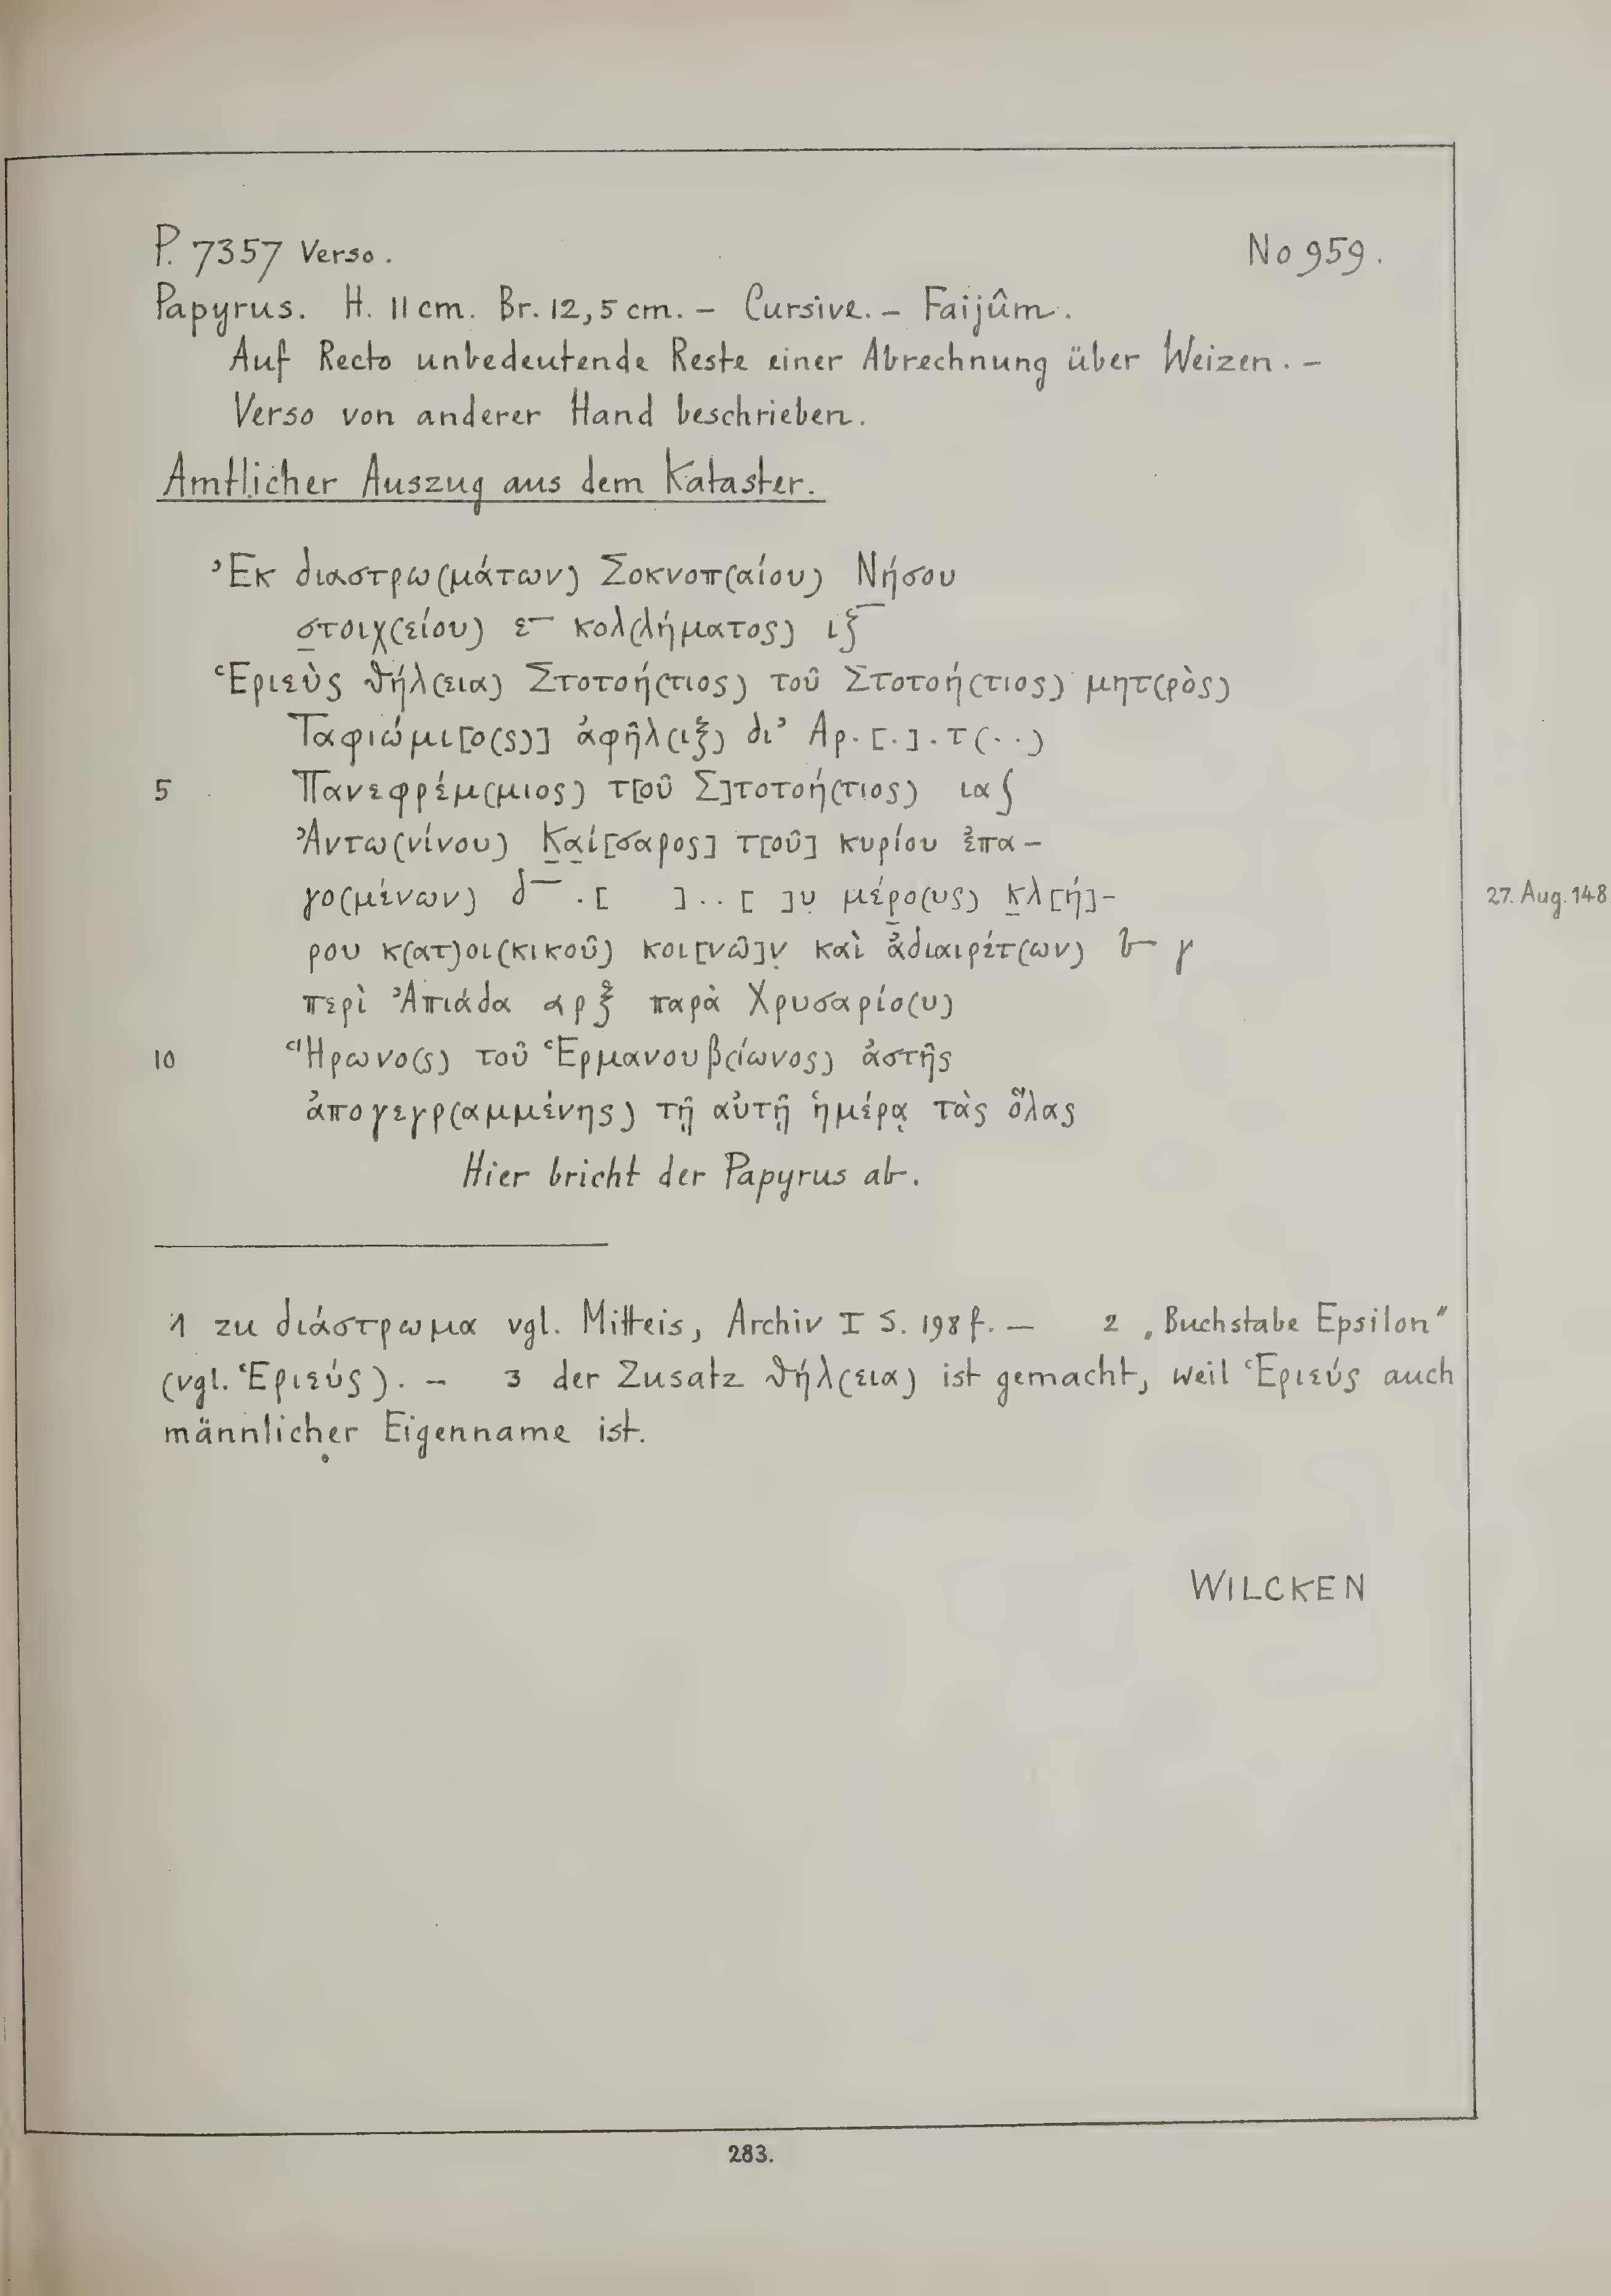 P. 7357 Verso. No 959.
Papyrus. H. 11 cm. Br. 12,5 cm. – Cursive. – Faijûm.
Auf Recto unbedeutende Reste einer Abrechnung über Weizen. –
Verso von anderer Hand beschrieben.
Amtlicher Auszug aus dem Kataster.
Ἐκ διαστρω(μάτων) Σοκνοπ(αίου) Νήσου
σ̲τοιχ(είου) ε‾ κολ(λήματος) ιξ‾
Ἑριεὺς θήλ(εια) Στοτοή(τιος) τοῦ Στοτοή(τιος) μητ(ρὸς)
Ταφιώμι[ο(ς)] ἀφῆλ(ιξ) δι' Αρ.[.].τ(..)
5 Πανεφρέμ(μιος) τ[οῦ Σ]τοτοή(τιος) ια ʃ
Ἀντω(νίνου) Κ̲α̲ί[σαρος] τ[οῦ] κυρίου ἐπα-
γο(μένων) δ‾ .[ ]..[ ]υ̣ μέρ̲ο(υς) κ̲λ[ή]- 27. Aug. 148
ρου κ(ατ)οι(κικοῦ) κοι[νῶ]ν̣ καὶ ἀδιαιρέτ(ων) 𐅵 γ
περὶ Ἀπιάδα αρξ παρὰ Χρυσαρίο(υ)
10 Ἥρωνο(ς) τοῦ Ἑρμανουβ(ίωνος) ἀστῆς
ἀπογεγρ(αμμένης) τῇ αὐτῇ ἡμέρᾳ τὰς ὅλας
Hier bricht der Papyrus ab.
1 zu διάστρωμα vgl. Mitteis, Archiv I S. 198 f. – 2 „Buchstabe Epsilon"
(vgl. Ἑριεύς). – 3 der Zusatz θήλ(εια) ist gemacht, weil Ἑριεύς auch
männlicher Eigenname ist.
WILCKEN
283.